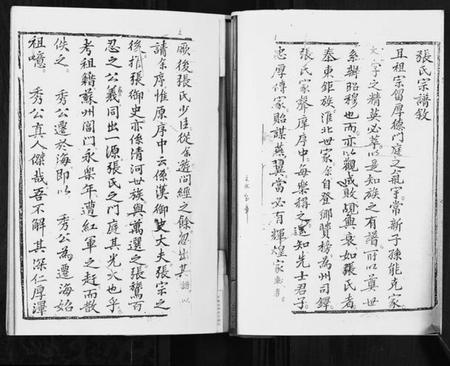 張氏宗譜敘
且祖宗留厚德門庭之氣宇常新子孫能克家
文字之精英必萃以是知族之有譜所以奠世
系辨昭穆也而亦以觀成敗規興衰如張氏者
秦東鉅族淮北世家余自登鄉贊榜為州司鐸
張氏家聲庠序中每樂稱之遂知先士君子
忠厚傳家貽謀燕翼當必有輝煌家
厥後張氏少臣從余遊問經之餘忽出其譜以
請余序惟原序中云係漢御史大夫張宗之
後指張御史亦係清河世族與萬選之張鷟奇
忍之公義同出一源張氏之門庭其光大也乎
考祖籍蘇州閶門永樂年遭紅軍之赶而散
佚之 秀公遷於海即以 秀公為遷海始
祖噫 秀公真人傑哉吾不解其深仁厚澤